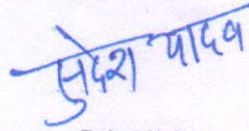 सुदेश यादव